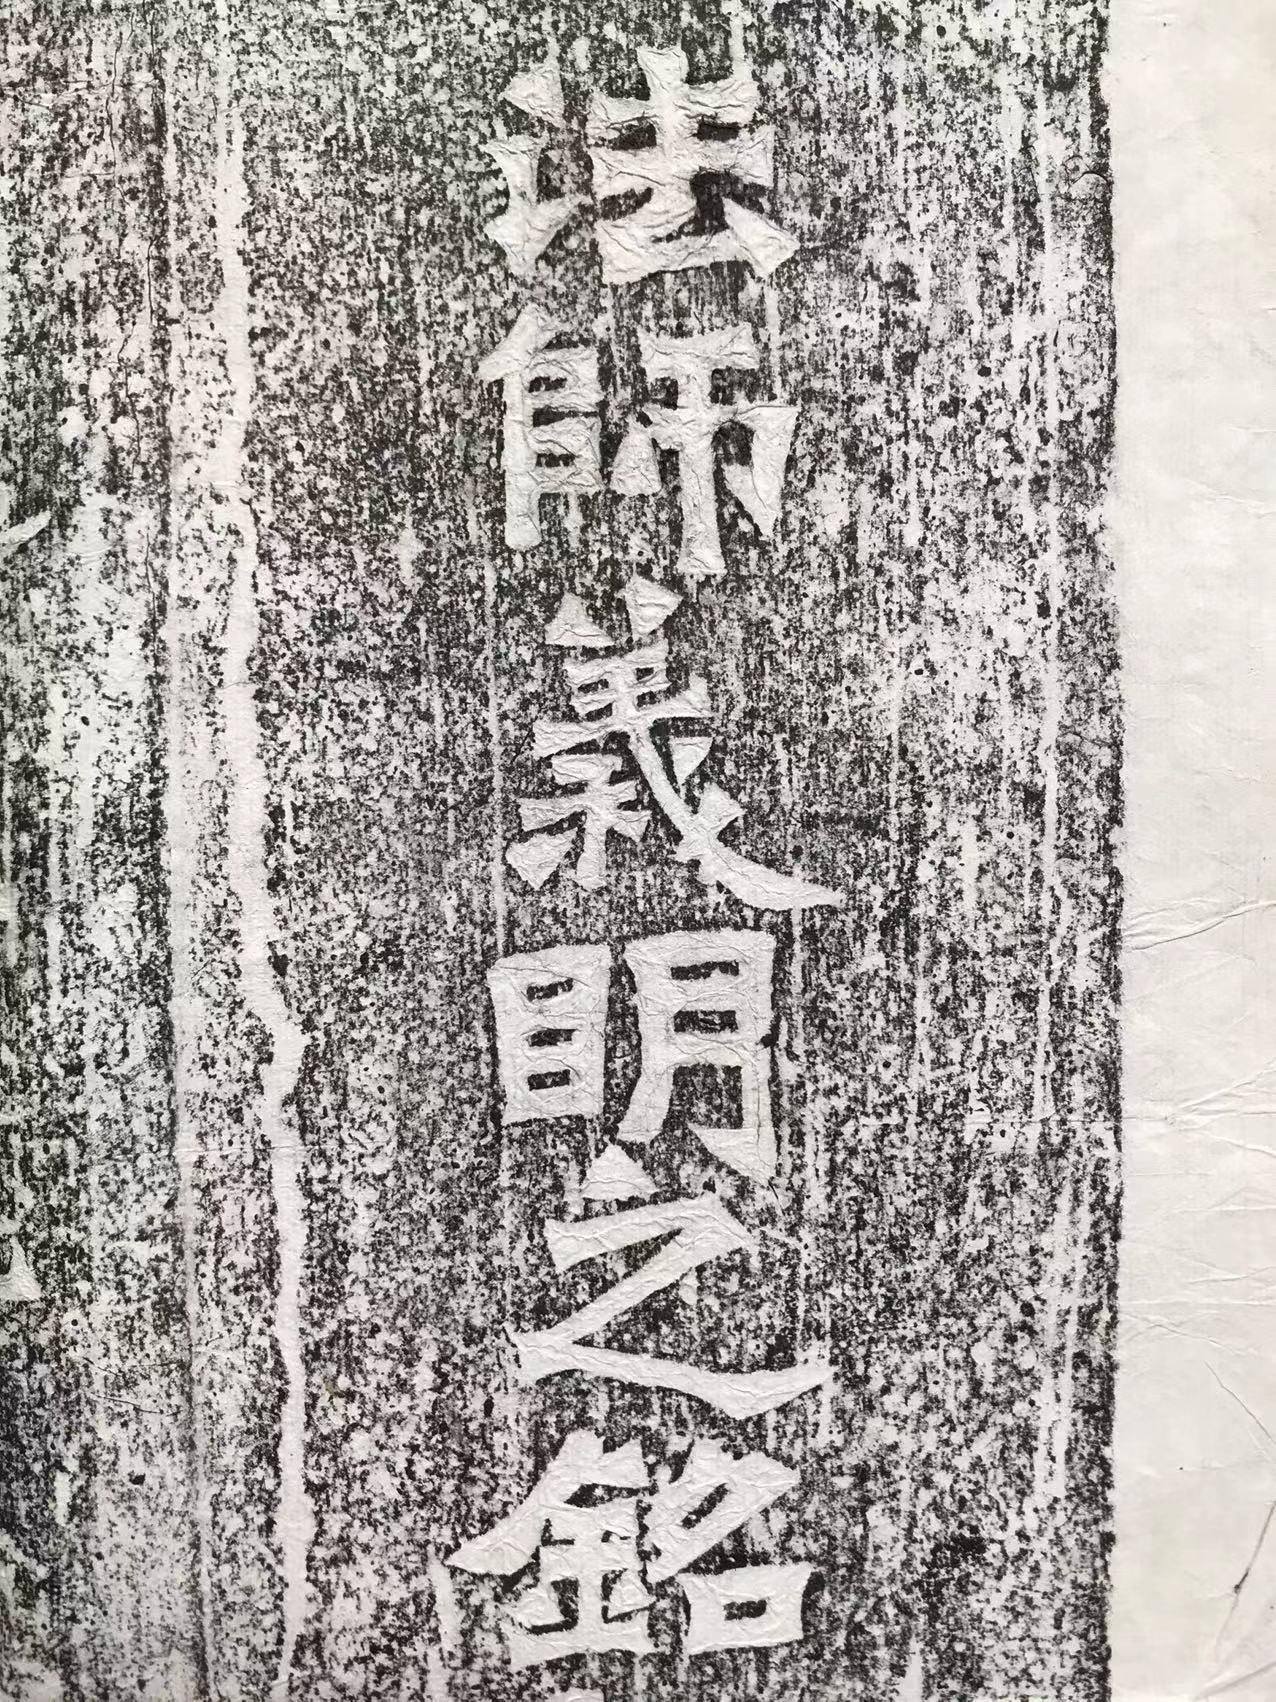 法師義眀之銘